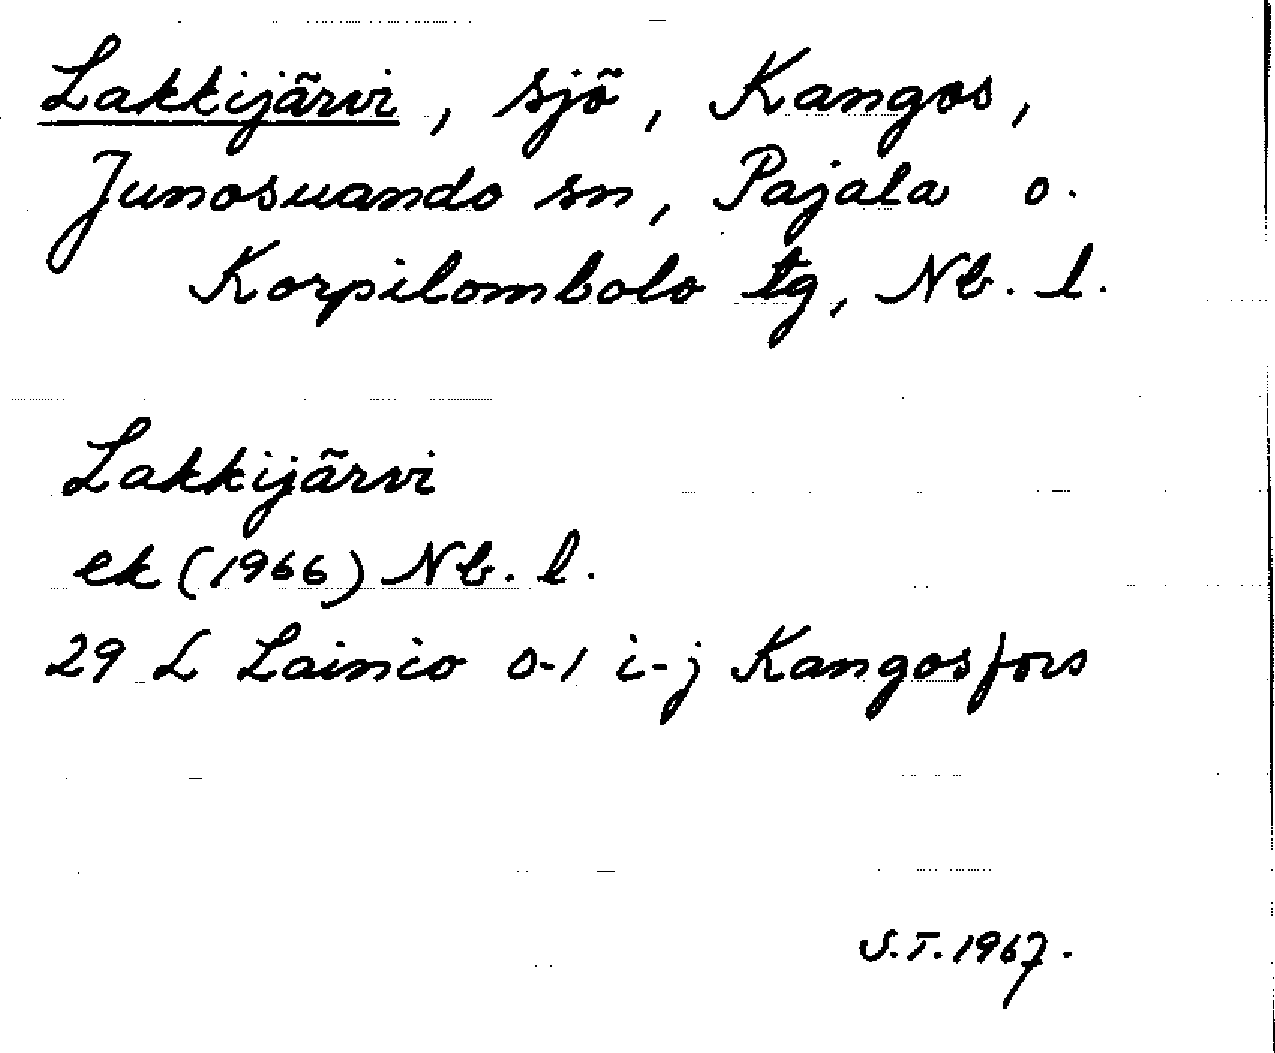 Lakkijärvi, sjö, Kangos,
Junosuando sn, Pajala o.
Korpilombolo tg, Nb. l.
Lakkijärvi
ek (1966) Nb. l.
29 L Lainio 0-1 i-j Kangosfors
S.T. 1967.